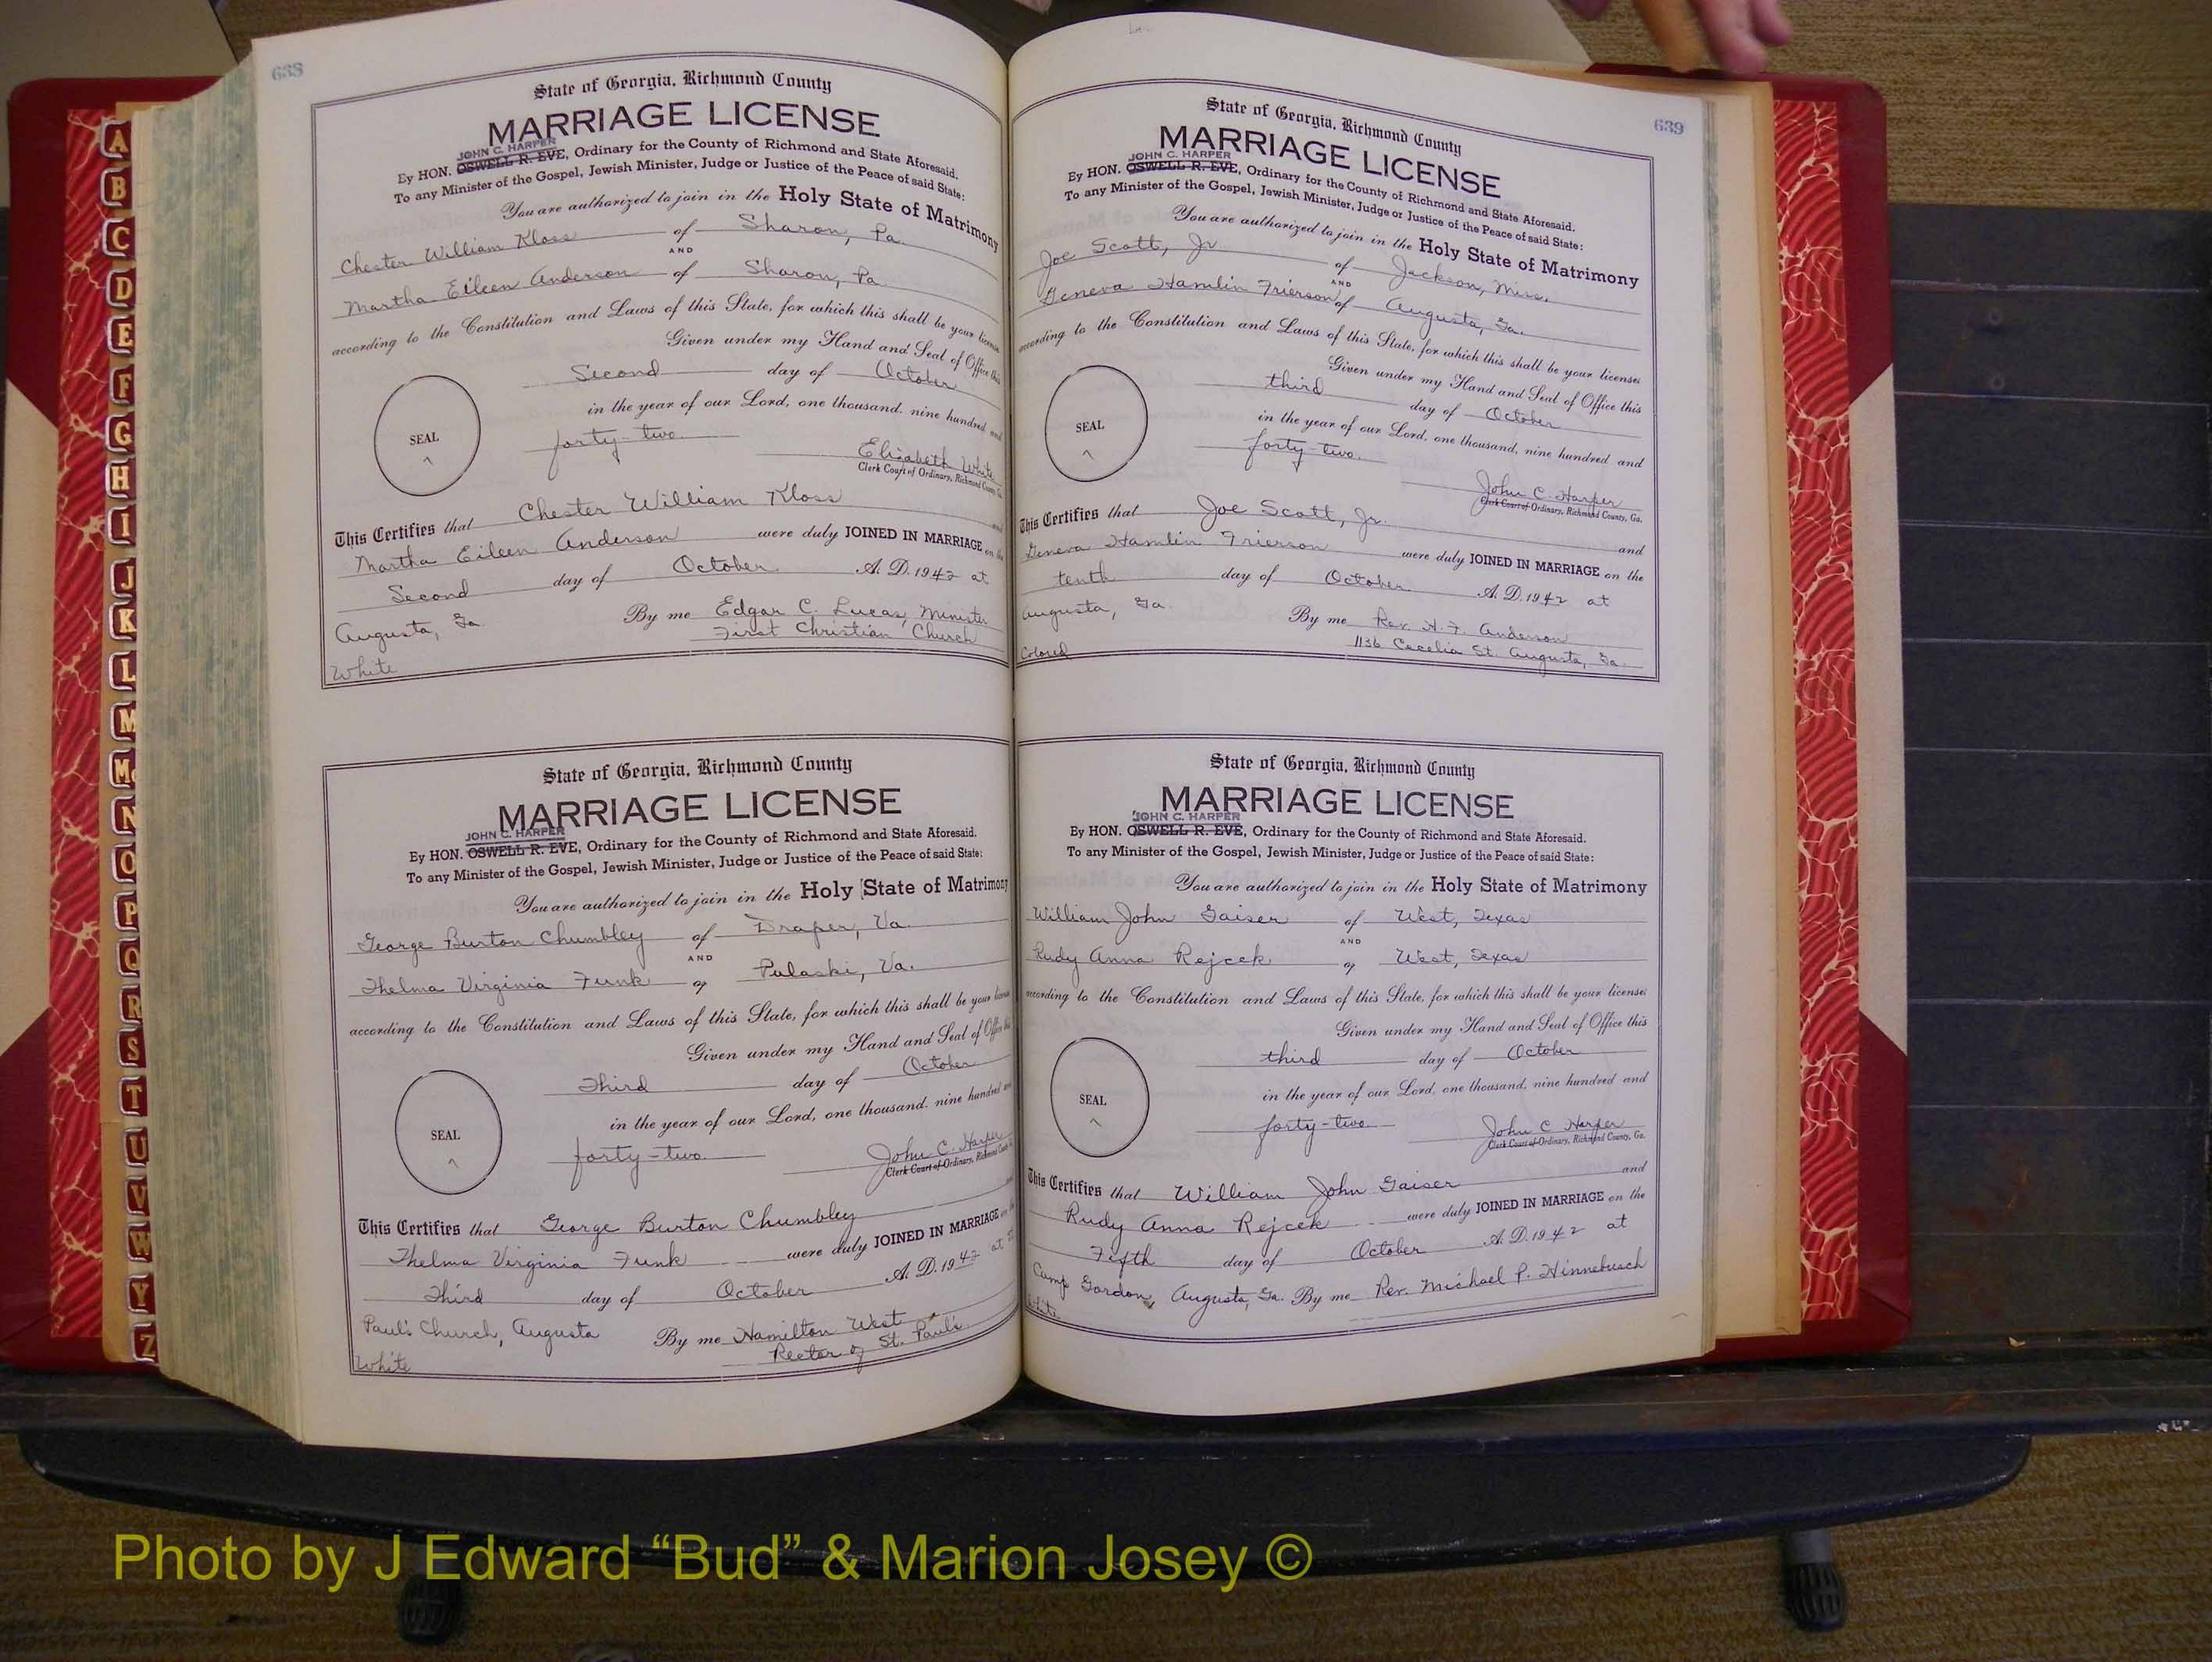 638
State of Georgia, Richmond County
MARRIAGE LICENSE
JOHN C. HARPER
By HON. OSWELL R. EVE, Ordinary for the County of Richmond and State Aforesaid.
To any Minister of the Gospel, Jewish Minister, Judge or Justice of the Peace of said State:
You are authorized to join in the Holy State of Matrimony
Chester William Kloss of Sharon, Pa.
AND
Martha Eileen Anderson of Sharon, Pa.
according to the Constitution and Laws of this State, for which this shall be your license
Given under my Hand and Seal of Office this
Second day of October
in the year of our Lord, one thousand, nine hundred and
SEAL
forty-two.
Elizabeth White
Clerk Court of Ordinary, Richmond County, Ga.
This Certifies that Chester William Kloss and
Martha Eileen Anderson were duly JOINED IN MARRIAGE on the
Second day of October A. D. 1942 at
Augusta, Ga. By me Edgar C. Lucas, Minister
First Christian Church
White
State of Georgia, Richmond County
MARRIAGE LICENSE
JOHN C. HARPER
By HON. OSWELL R. EVE, Ordinary for the County of Richmond and State Aforesaid.
To any Minister of the Gospel, Jewish Minister, Judge or Justice of the Peace of said State:
You are authorized to join in the Holy State of Matrimony
George Burton Chumbley of Draper, Va.
AND
Thelma Virginia Funk of Pulaski, Va.
according to the Constitution and Laws of this State, for which this shall be your license
Given under my Hand and Seal of Office this
Third day of October
in the year of our Lord, one thousand, nine hundred and
SEAL
forty-two.
John C. Harper
Clerk Court of Ordinary, Richmond County
This Certifies that George Burton Chumbley
Thelma Virginia Funk were duly JOINED IN MARRIAGE on the
Third day of October A. D. 1942 at
Paul's Church, Augusta By me Hamilton West
Rector of St. Paul's
White
639
State of Georgia, Richmond County
MARRIAGE LICENSE
JOHN C. HARPER
By HON. OSWELL R. EVE, Ordinary for the County of Richmond and State Aforesaid.
To any Minister of the Gospel, Jewish Minister, Judge or Justice of the Peace of said State:
You are authorized to join in the Holy State of Matrimony
Joe Scott, Jr. of Jackson, Miss.
AND
Geneva Hamlin Frierson of Augusta, Ga.
according to the Constitution and Laws of this State, for which this shall be your license
Given under my Hand and Seal of Office this
third day of October
in the year of our Lord, one thousand, nine hundred and
SEAL
forty-two.
John C. Harper
Clerk Court of Ordinary, Richmond County, Ga.
This Certifies that Joe Scott, Jr. and
Geneva Hamlin Frierson were duly JOINED IN MARRIAGE on the
tenth day of October A. D. 1942 at
Augusta, Ga. By me Rev. H. F. Anderson
1136 Cecelia St. Augusta, Ga.
Colored
State of Georgia, Richmond County
MARRIAGE LICENSE
JOHN C. HARPER
By HON. OSWELL R. EVE, Ordinary for the County of Richmond and State Aforesaid.
To any Minister of the Gospel, Jewish Minister, Judge or Justice of the Peace of said State:
You are authorized to join in the Holy State of Matrimony
William John Gaiser of West, Texas
AND
Rudy Anna Rejcek of West, Texas
according to the Constitution and Laws of this State, for which this shall be your license
Given under my Hand and Seal of Office this
third day of October
in the year of our Lord, one thousand, nine hundred and
SEAL
forty-two
John C Harper
Clerk Court of Ordinary, Richmond County, Ga.
This Certifies that William John Gaiser and
Rudy Anna Rejcek were duly JOINED IN MARRIAGE on the
Fifth day of October A. D. 1942 at
Camp Gordon, Augusta, Ga. By me Rev. Michael P. Hinnebusch
White
A
B
C
D
E
F
G
H
I
J
K
L
M
Mc
N
O
P
Q
R
S
T
U
V
W
Y
Z
Photo by J Edward “Bud” & Marion Josey ©